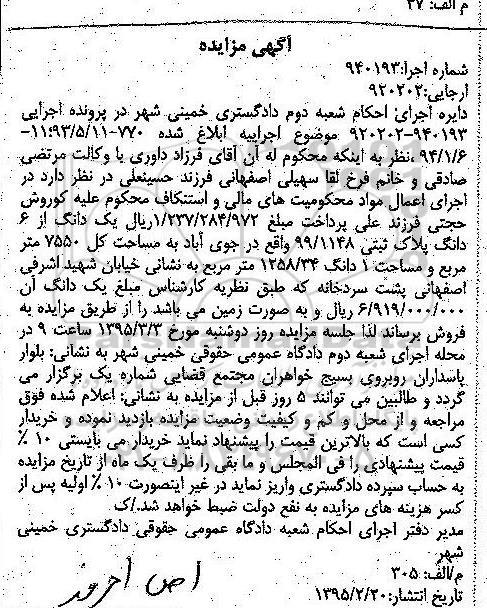 م الف: ۳۷
آگهی مزایده
شماره اجرا:۹۴۰۱۹۳
ارجایی:۹۲۰۲۰۲
دایره اجرای احکام شعبه دوم دادگستری خمینی شهر در پرونده اجرایی
۹۴۰۱۹۳-۹۲۰۲۰۲ موضوع اجراییه ابلاغ شده ۷۷۰-۱۱:۹۳/۵/۱۱-
۹۴/۱/۶ ،نظر به اینکه محکوم له آن آقای فرزاد داوری با وکالت مرتضی
صادقی و خانم فرخ لقا سهیلی اصفهانی فرزند حسینعلی در نظر دارد در
اجرای اعمال مواد محکومیت های مالی و استنکاف محکوم علیه کوروش
حجتی فرزند علی پرداخت مبلغ ۱/۲۳۷/۲۸۴/۹۷۲ریال یک دانگ از ۶
دانگ پلاک ثبتی ۹۹/۱۱۴۸ واقع در جوی آباد به مساحت کل ۷۵۵۰ متر
مربع و مساحت ۱ دانگ ۱۲۵۸/۳۴ متر مربع به نشانی خیابان شهید اشرفی
اصفهانی پشت سردخانه که طبق نظریه کارشناس مبلغ یک دانگ آن
۶/۹۱۹/۰۰۰/۰۰۰ ریال و به صورت زمین می باشد را از طریق مزایده به
فروش برساند لذا جلسه مزایده روز دوشنبه مورخ ۱۳۹۵/۳/۳ ساعت ۹ در
محله اجرای شعبه دوم دادگاه عمومی حقوقی خمینی شهر به نشانی: بلوار
پاسداران روبروی بسیج خواهران مجتمع قضایی شماره یک برگزار می
گردد و طالبین می توانند ۵ روز قبل از مزایده به نشانی: اعلام شده فوق
مراجعه و از محل و کم و کیفیت وضعیت مزایده بازدید نموده و خریدار
کسی است که بالاترین قیمت را پیشنهاد نماید خریدار می بایستی ۱۰ ٪
قیمت پیشنهادی را فی المجلس و ما بقی را ظرف یک ماه از تاریخ مزایده
به حساب سپرده دادگستری واریز نماید در غیر اینصورت ۱۰ ٪ اولیه پس از
کسر هزینه های مزایده به نفع دولت ضبط خواهد شد./ک
مدیر دفتر اجرای احکام شعبه دادگاه عمومی حقوقی دادگستری خمینی
شهر
م/الف: ۳۰۵
تاریخ انتشار:۱۳۹۵/۲/۲۰